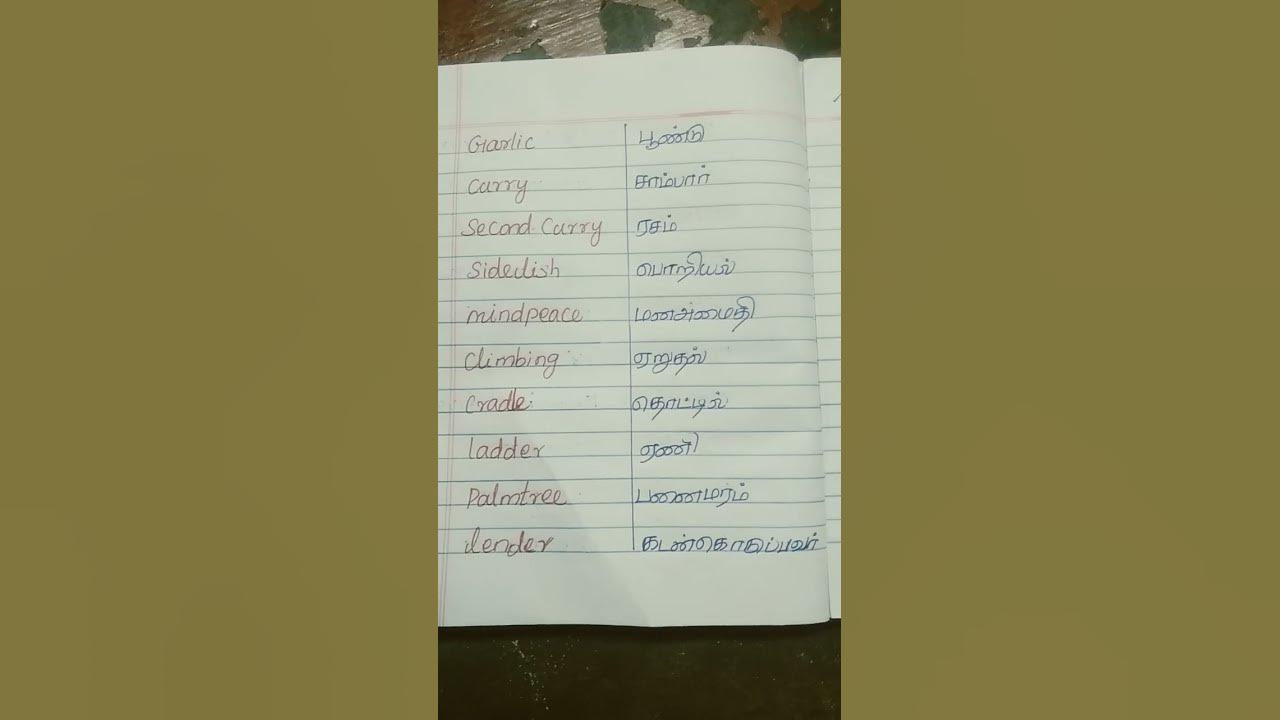 Garlic பூண்டு
Curry சாம்பார்
Second Curry ரசம்
Sidedish பொறியல்
mindpeace மனஅமைதி
Climbing ஏறுதல்
Cradle தொட்டில்
ladder ஏணி
Palmtree பனைமரம்
lender கடன்கொடுப்பவர்